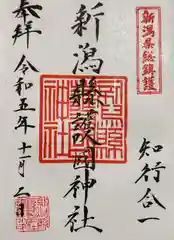 新潟県総鎮護
知行合一
新潟縣護國神社
奉拝
令和五年十一月二日